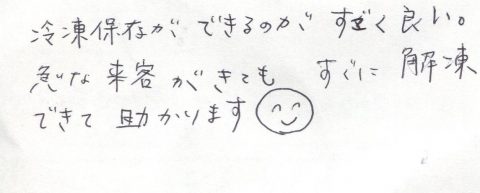 冷凍保存ができるのがすごく良い。
急な来客がきてもすぐに解凍
できて助かります